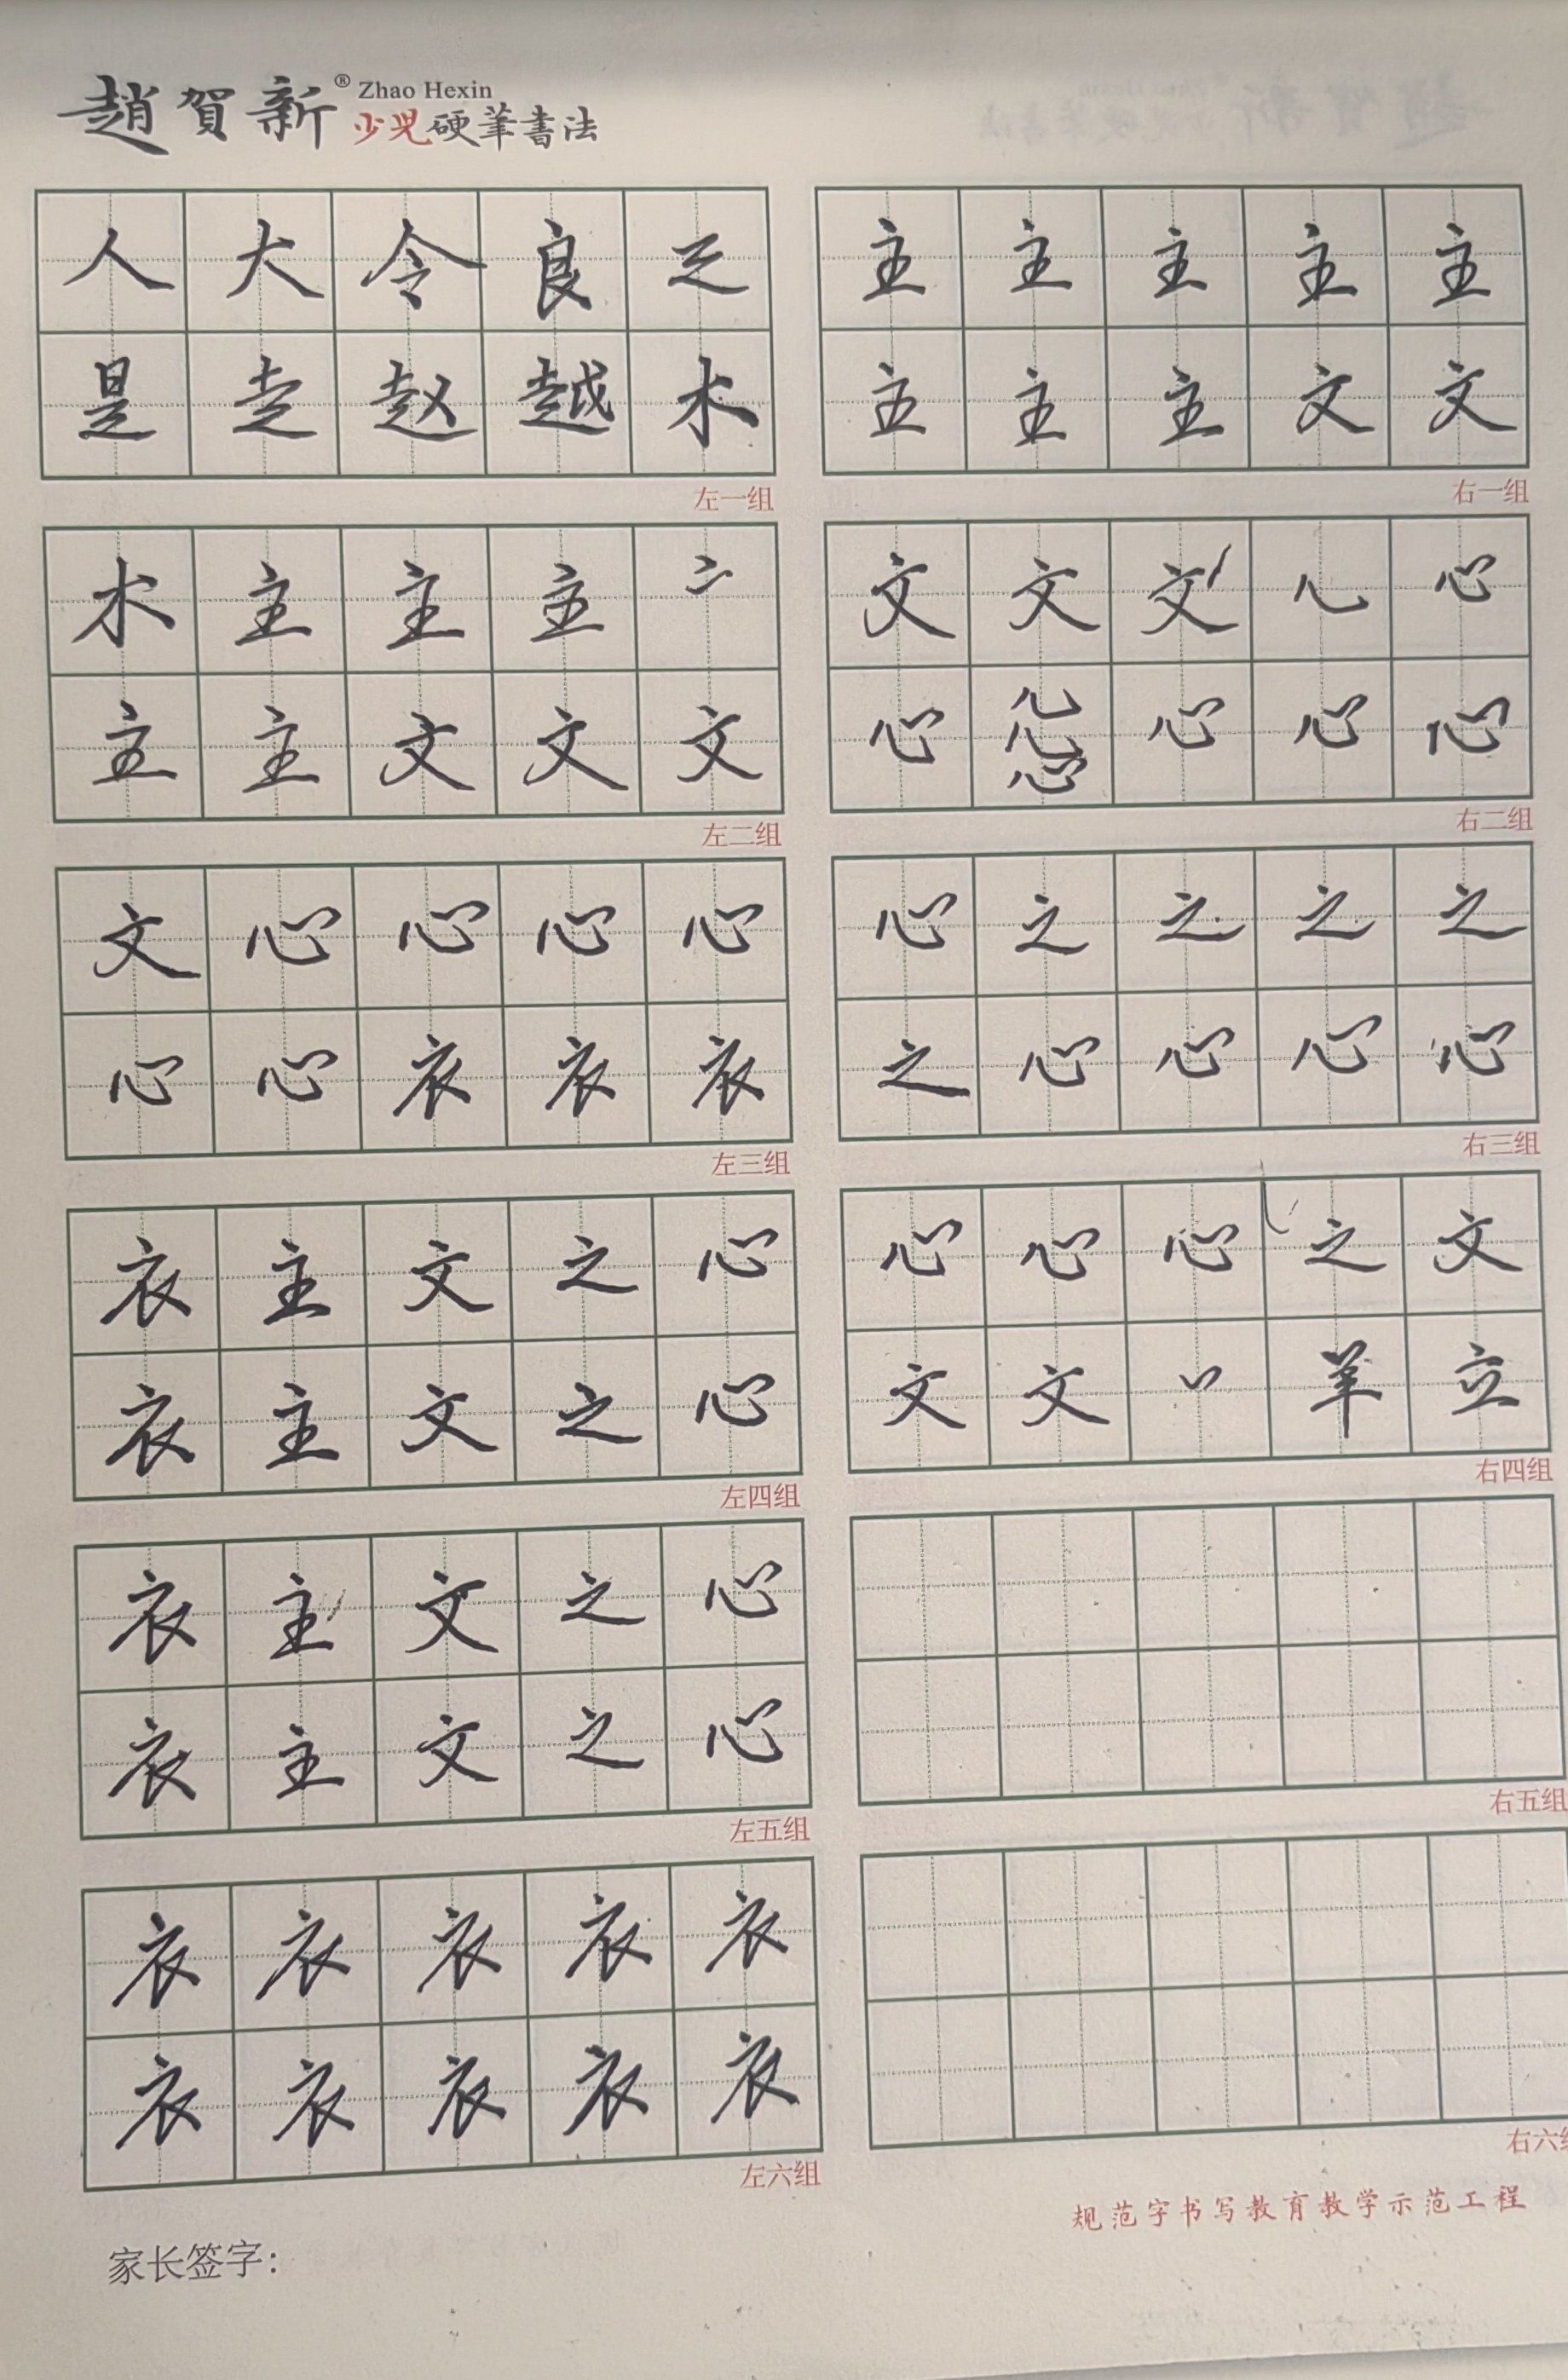 趙賀新® Zhao Hexin
少児硬筆書法
人大令良
是走赵越木
左一组
木主主主
主主文文文
左二组
文心心心心
心心衣衣衣
左三组
衣主文之心
衣主文之心
左四组
衣主文之心
衣主文之心
左五组
衣衣衣衣衣
衣衣衣衣衣
左六组
主主主主主
主主主文文
右一组
文文文心
心心心心心心
右二组
心之之之之
之心心心心
右三组
心心心之文
文文羊立
右四组
右五组
右六组
规范字书写教育教学示范工程
家长签字：